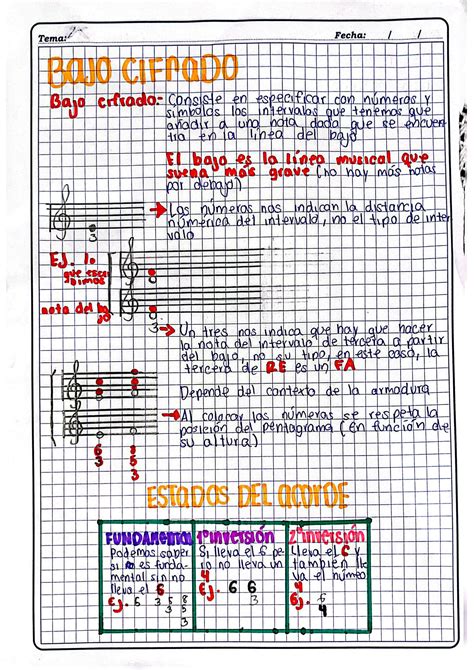 Tema:
Fecha: / /
BAJO CIFRADO
Bajo cifrado:- Consiste en especificar con números y
símbolos los intervalos que tenemos que
añadir a una nota dada que se encuen
tra en la línea del bajo
El bajo es la línea musical que
suena más grave (no hay más notas
por debajo)
→Los números nos indican la distancia
numérica del intervalo, no el tipo de inter
valo
3
Ej. lo
que escri
bimos
nota del ba
jo
3
→Un tres nos indica que hay que hacer
la nota del intervalo de tercera a partir
del bajo, no su tipo, en este caso, la
tercera de RE es un FA
Depende del contexto de la armadura
→Al colocar los números se respeta la
posición del pentagrama (en función de
su altura)
6
3
5
3
ESTADOS DEL ACORDE
FUNDAMENTAL
Podemos saber
si es funda-
mental si no
lleva el 6
Ej. 6 3 5 8
3 5
3
1ºinversión
Si lleva el 6 pe
ro no lleva un
4
Ej. 6 6
3
2ºinversión
Lleva el 6 y
también lle
va el número
4
Ej. 6
4